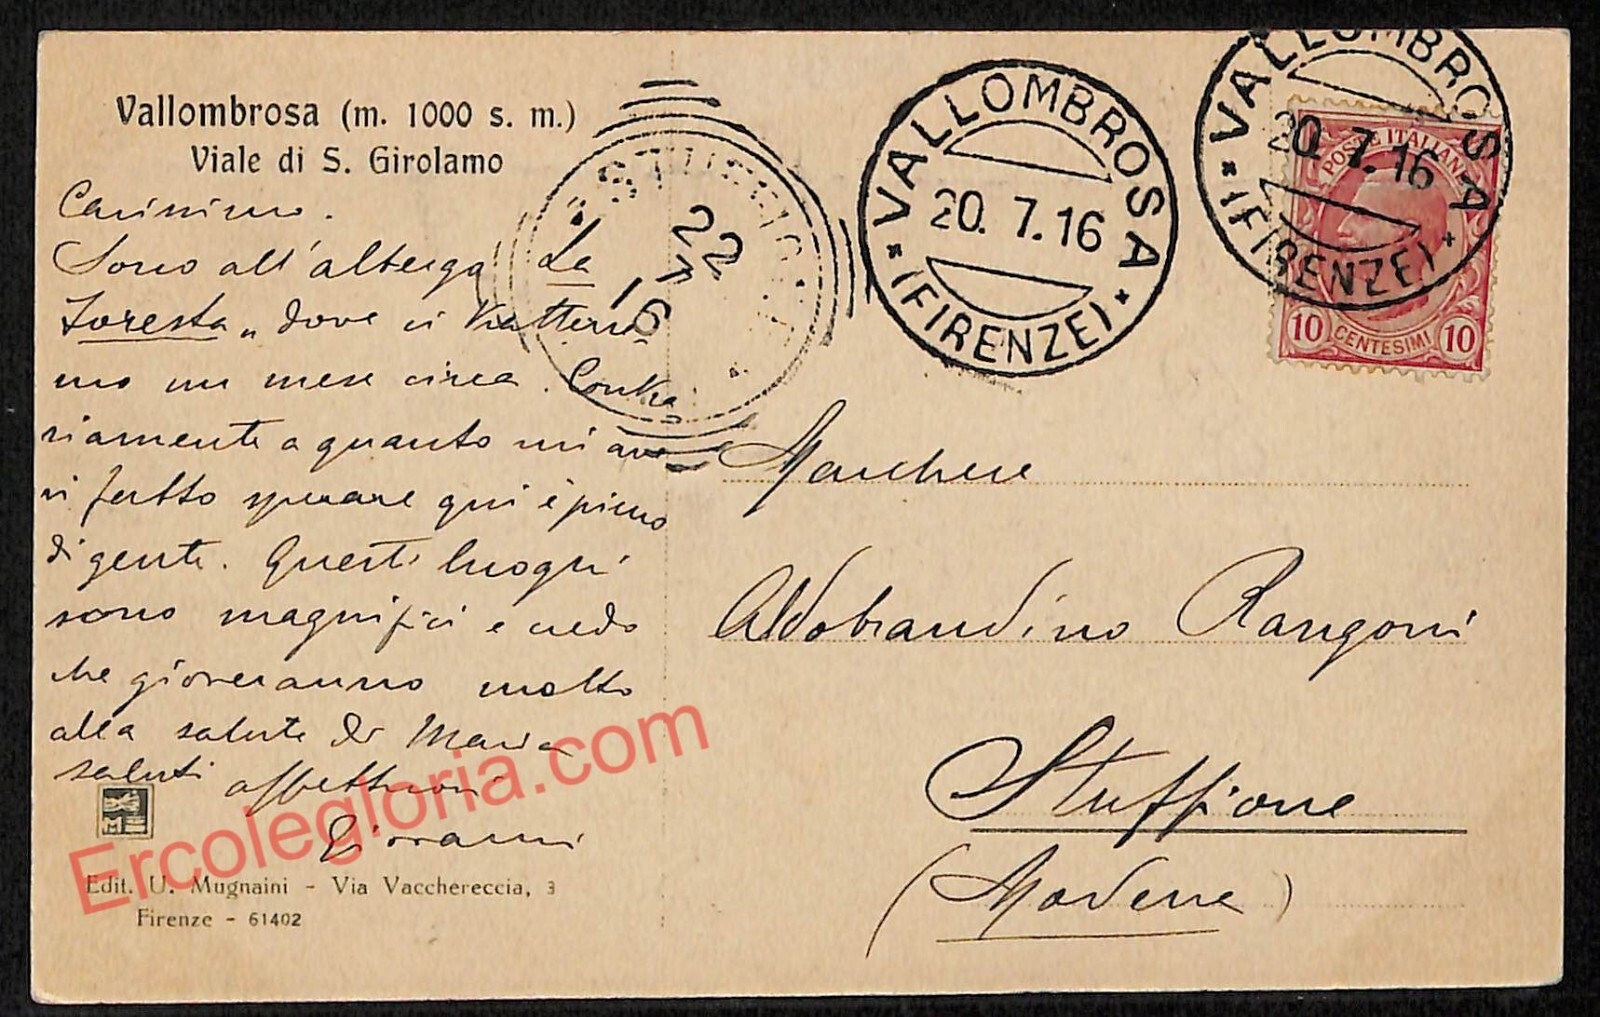 Vallombrosa (m. 1000 s. m.)
Viale di S. Girolamo
Carissimo.
Sono all'albergo "La
Foresta" dove ci tratterre
mo un mese circa. Contra
riamente a quanto mi ave
vi fatto sperare qui è pieno
di gente. Questi luoghi
sono magnifici e credo
che gioveranno molto
alla salute di Maria
saluti affettuosi
Giovanni
Edit. U. Mugnaini - Via Vacchereccia, 3
Firenze - 61402
22
7
16
VALLOMBROSA
20.7.16
(FIRENZE)
VALLOMBROSA
20.7.16
(FIRENZE)
POSTE ITALIANE
10 CENTESIMI 10
Marchese
Aldobrandino Rangoni
Stuffione
(Modena)
Ercolegloria.com